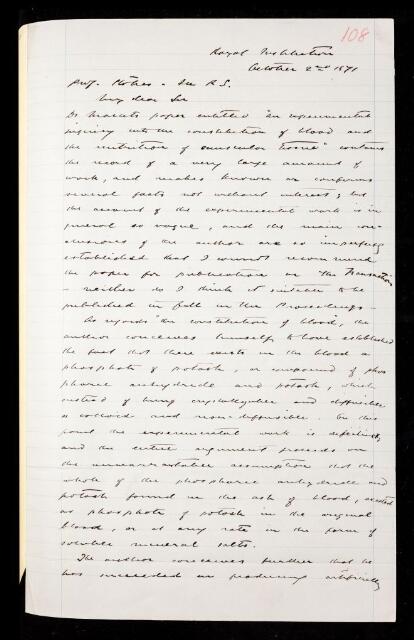 108
Royal Institution
October 2nd 1871
Prof. Stokes - Sec R.S.
My dear Sir
Dr Marcet's paper entitled "An experimental
inquiry into the constitution of blood and
the nutrition of muscular tissue" contains
the record of a very large amount of
work, and makes known or confirms
several facts not without interest; but
the account of the experimental work is in
general so vague, and the main con-
clusions of the author are so imperfectly
established that I cannot recommend
the paper for publication in the Transactions
- neither do I think it suitable to be
published in full in the Proceedings -
As regards "the constitution of blood", the
author conceives himself to have established
the fact that there exists in the blood a
phosphate of potash, or compound of phos
phoric anhydride and potash, which
instead of being crystallizable and diffusible
is colloid and non-diffusible. On this
point the experimental work is deficient,
and the entire argument proceeds on
the unwarrantable assumption that the
whole of the phosphoric anhydride and
potash found in the ash of blood, existed
as phosphate of potash in the original
blood, or at any rate in the form of
soluble mineral salts.
The author conceives further that he
has succeeded in producing artificially